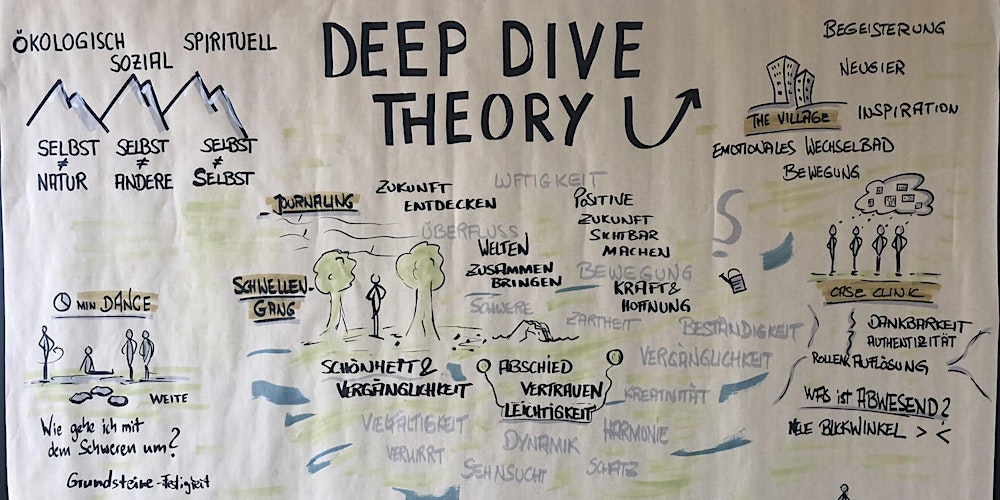 ÖKOLOGISCH
SOZIAL
SPIRITUELL
SELBST
≠
NATUR
SELBST
≠
ANDERE
SELBST
≠
SELBST
DEEP DIVE
THEORY U
BEGEISTERUNG
NEUGIER
INSPIRATION
THE VILLAGE
EMOTIONALES WECHSELBAD
BEWEGUNG
JOURNALING
ZUKUNFT
ENTDECKEN
LUFTIGKEIT
POSITIVE
ZUKUNFT
SICHTBAR
MACHEN
ÜBERFLUSS
WELTEN
ZUSAMMEN
BRINGEN
BEWEGUNG
KRAFT &
HOFFNUNG
SCHWELLEN-
GANG
SCHWERE
ZARTHEIT
BESTÄNDIGKEIT
VERGÄNGLICHKEIT
SCHÖNHEIT &
VERGÄNGLICHKEIT
ABSCHIED
VERTRAUEN
LEICHTIGKEIT
KREATIVITÄT
VIELFÄLTIGKEIT
DYNAMIK
HARMONIE
VERWIRRT
SEHNSUCHT
SCHATZ
MIN DANCE
WEITE
Wie gehe ich mit
dem Schweren um?
Grundsteine - Festigkeit
CASE CLINIC
DANKBARKEIT
AUTHENTIZITÄT
ROLLEN AUFLÖSUNG
WAS ist ABWESEND?
NEUE BLICKWINKEL > <